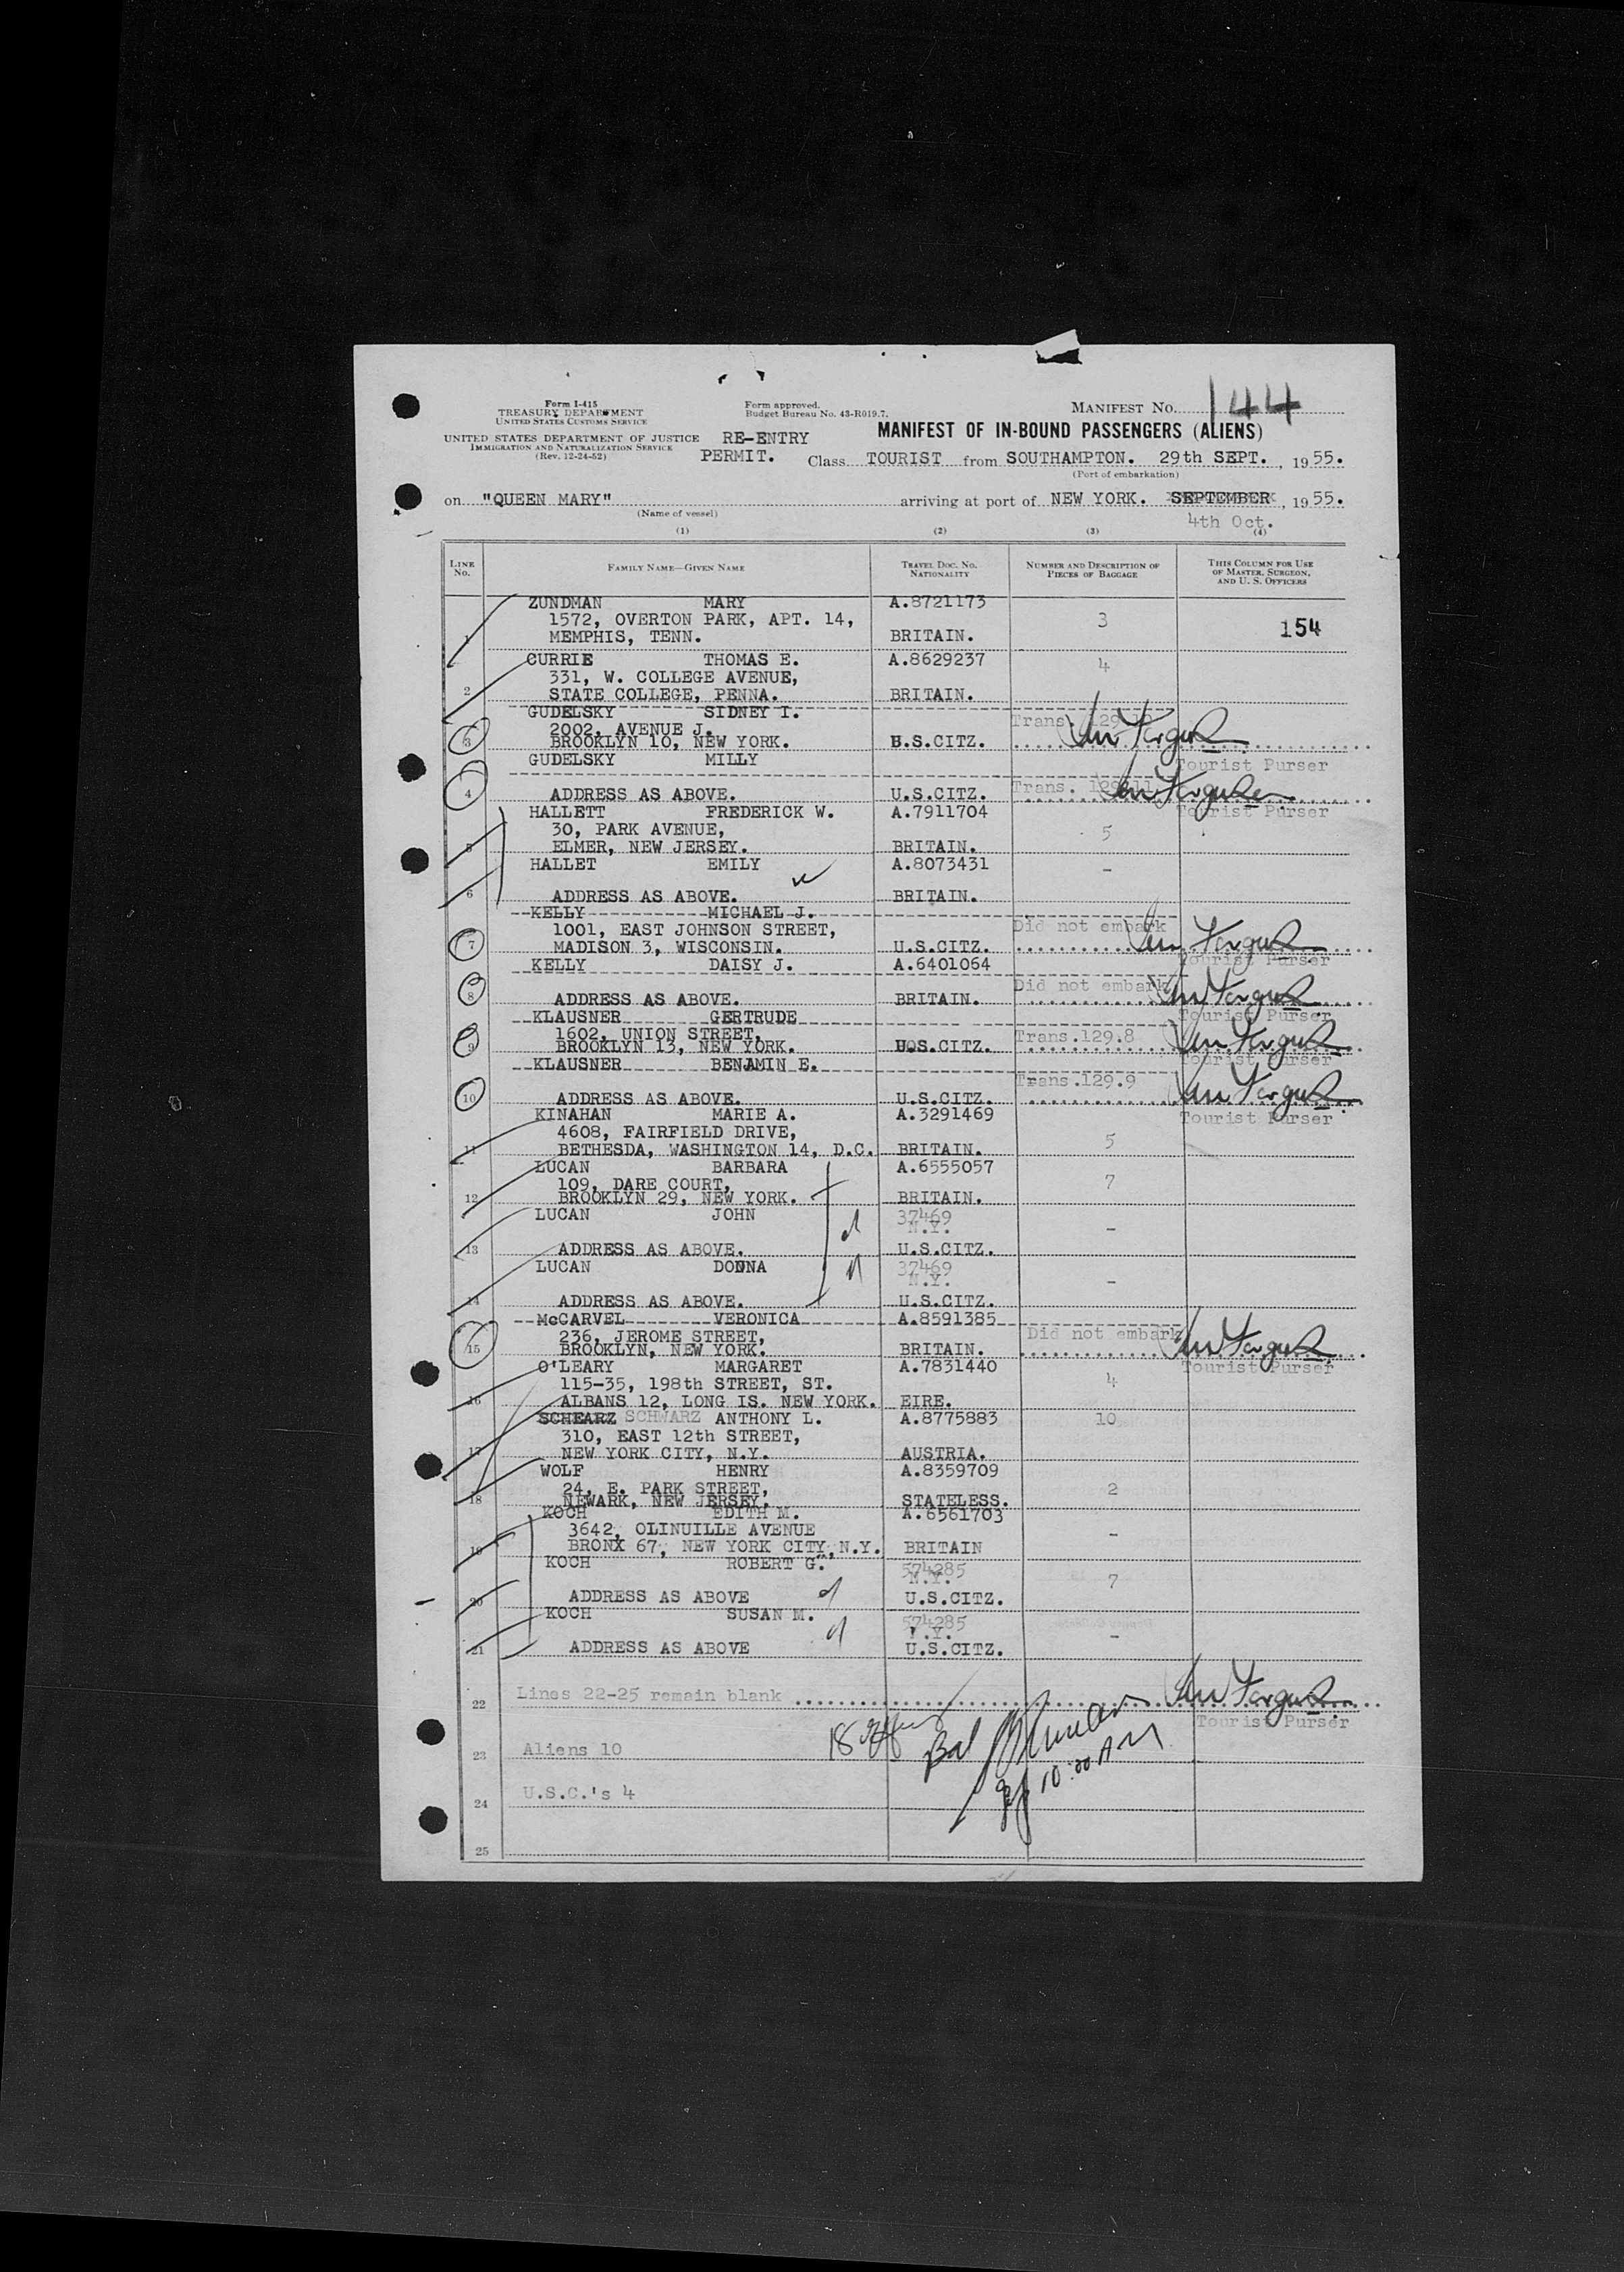 Form I-415
TREASURY DEPARTMENT
UNITED STATES CUSTOMS SERVICE
UNITED STATES DEPARTMENT OF JUSTICE
IMMIGRATION AND NATURALIZATION SERVICE
(Rev. 12-24-52)
Form approved.
Budget Bureau No. 43-R019.7.
MANIFEST NO. 144
RE-ENTRY
PERMIT.
MANIFEST OF IN-BOUND PASSENGERS (ALIENS)
Class TOURIST from SOUTHAMPTON. 29th SEPT., 1955.
(Port of embarkation)
on "QUEEN MARY" arriving at port of NEW YORK. SEPTEMBER, 1955.
(Name of vessel)
4th Oct.
(1) (2) (3) (4)
LINE NO. FAMILY NAME—GIVEN NAME TRAVEL DOC. NO. NATIONALITY NUMBER AND DESCRIPTION OF PIECES OF BAGGAGE THIS COLUMN FOR USE OF MASTER, SURGEON, AND U. S. OFFICERS
ZUNDMAN MARY A.8721173
1572, OVERTON PARK, APT. 14, 3
1 MEMPHIS, TENN. BRITAIN. 154
CURRIE THOMAS E. A.8629237 4
331, W. COLLEGE AVENUE,
2 STATE COLLEGE, PENNA. BRITAIN.
GUDELSKY SIDNEY I. Trans.
2002, AVENUE J.
3 BROOKLYN 10, NEW YORK. U.S.CITZ.
GUDELSKY MILLY Tourist Purser
Trans.
4 ADDRESS AS ABOVE. U.S.CITZ.
HALLETT FREDERICK W. A.7911704 Tourist Purser
30, PARK AVENUE, 5
5 ELMER, NEW JERSEY. BRITAIN.
HALLET EMILY A.8073431 -
6 ADDRESS AS ABOVE. BRITAIN.
KELLY MICHAEL J.
1001, EAST JOHNSON STREET, Did not embark
7 MADISON 3, WISCONSIN. U.S.CITZ.
KELLY DAISY J. A.6401064 Tourist Purser
Did not embark
8 ADDRESS AS ABOVE. BRITAIN.
KLAUSNER GERTRUDE Tourist Purser
1602, UNION STREET, Trans.129.8
9 BROOKLYN 13, NEW YORK. U.S.CITZ.
KLAUSNER BENJAMIN E. Tourist Purser
Trans.129.9
10 ADDRESS AS ABOVE. U.S.CITZ.
KINAHAN MARIE A. A.3291469 Tourist Purser
4608, FAIRFIELD DRIVE, 5
11 BETHESDA, WASHINGTON 14, D.C. BRITAIN.
LUCAN BARBARA A.6555057
109, DARE COURT, 7
12 BROOKLYN 29, NEW YORK. BRITAIN.
LUCAN JOHN 37469
N.Y. -
13 ADDRESS AS ABOVE. U.S.CITZ.
LUCAN DONNA 37469
N.Y. -
14 ADDRESS AS ABOVE. U.S.CITZ.
McCARVEL VERONICA A.8591385
236, JEROME STREET, Did not embark
15 BROOKLYN, NEW YORK. BRITAIN.
O'LEARY MARGARET A.7831440 Tourist Purser
115-35, 198th STREET, ST. 4
16 ALBANS 12, LONG IS. NEW YORK. EIRE.
SCHEARZ SCHWARZ ANTHONY L. A.8775883 10
310, EAST 12th STREET,
17 NEW YORK CITY, N.Y. AUSTRIA.
WOLF HENRY A.8359709
24, E. PARK STREET, 2
18 NEWARK, NEW JERSEY. STATELESS.
KOCH EDITH M. A.6561703
3642, OLINUILLE AVENUE -
19 BRONX 67, NEW YORK CITY, N.Y. BRITAIN
KOCH ROBERT G. 574285
N.Y. 7
20 ADDRESS AS ABOVE U.S.CITZ.
KOCH SUSAN M. 574285
N.Y. -
21 ADDRESS AS ABOVE U.S.CITZ.
22 Lines 22-25 remain blank
Tourist Purser
23 Aliens 10 18 Bal
10:00 AM
24 U.S.C.'s 4
25